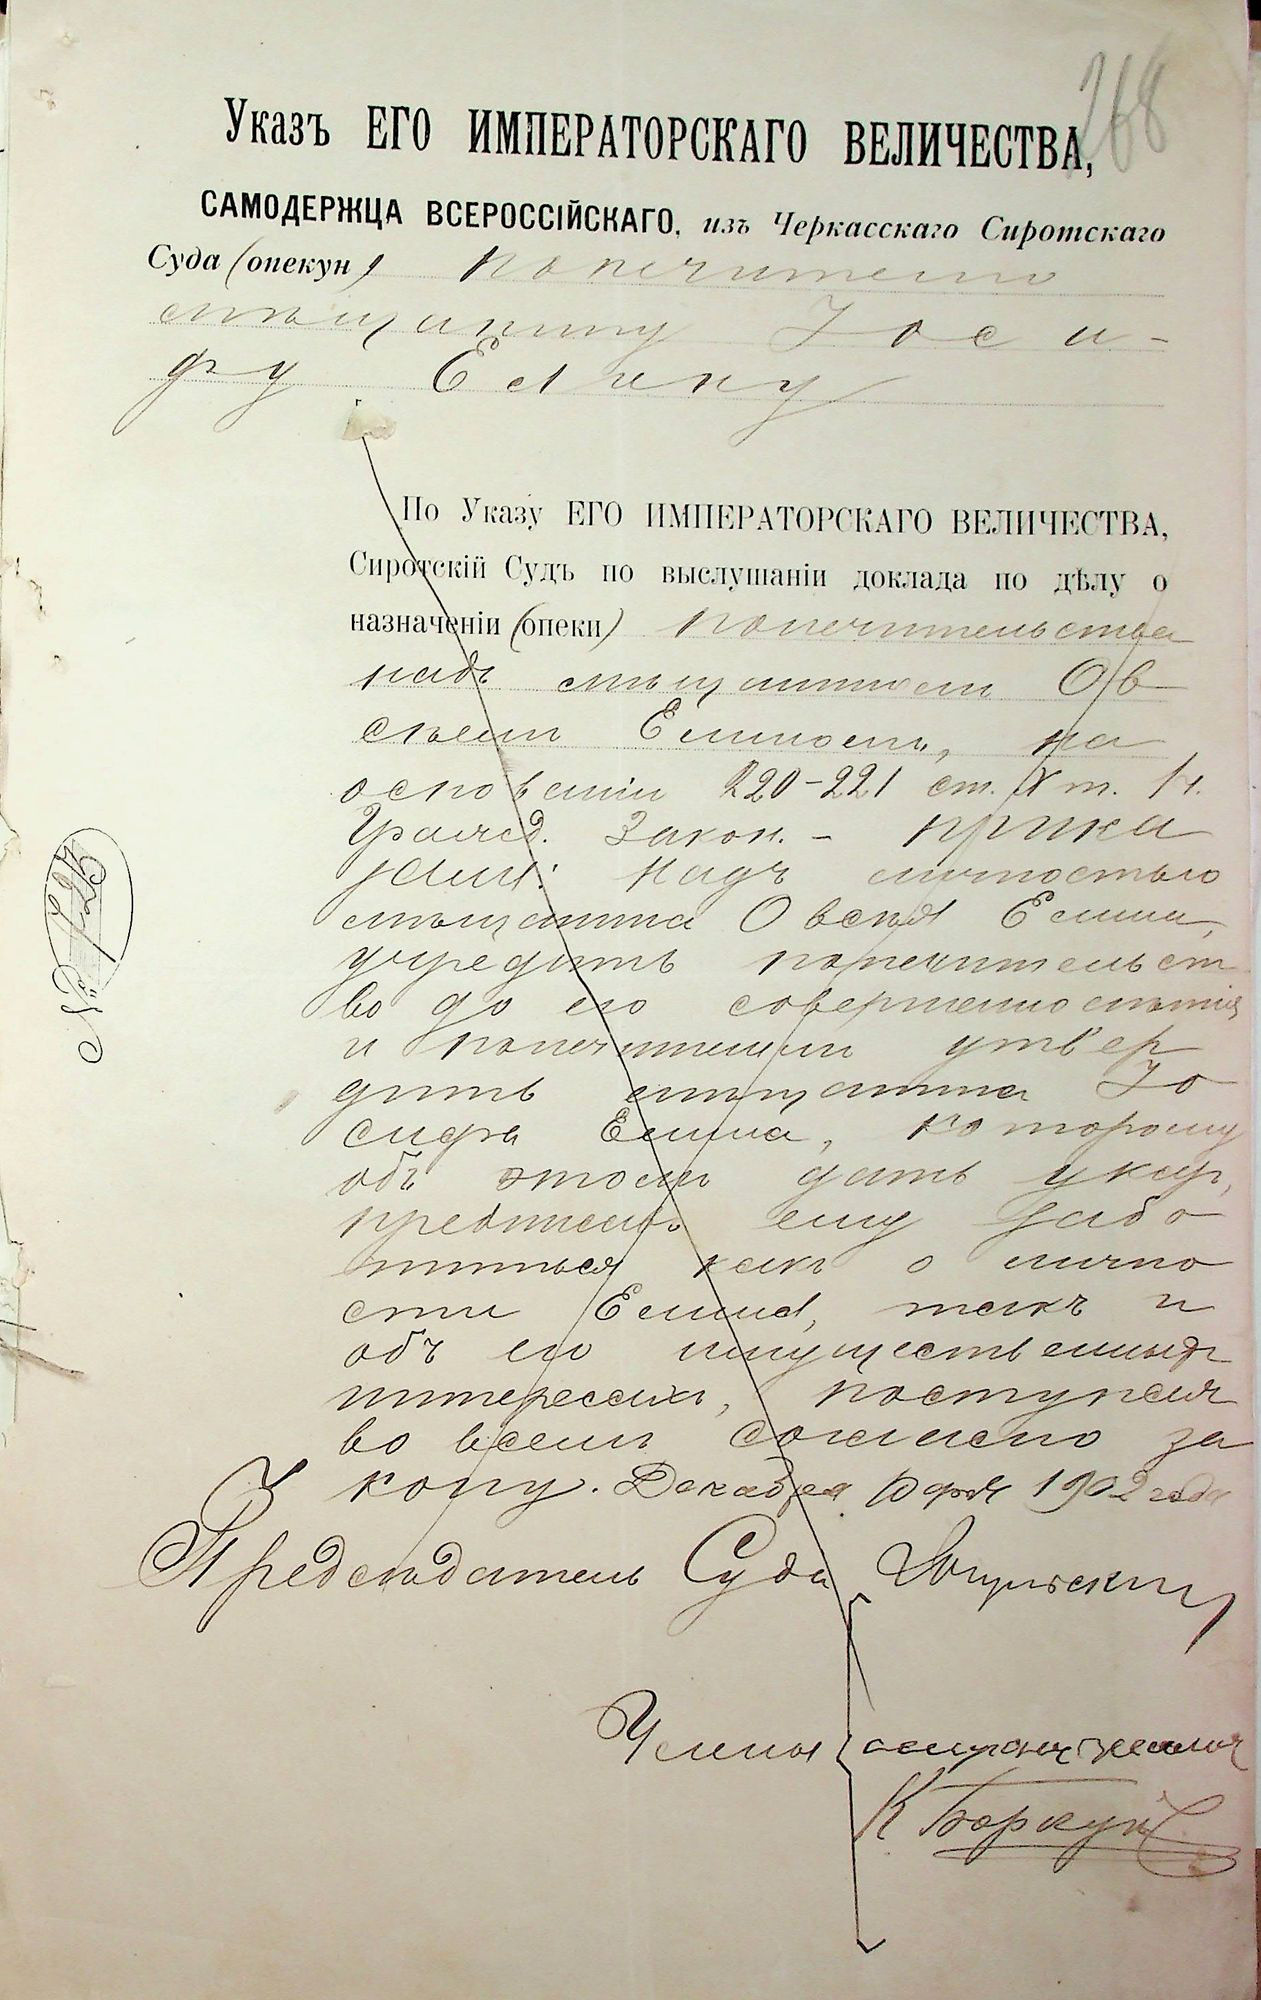 268
Указъ ЕГО ИМПЕРАТОРСКАГО ВЕЛИЧЕСТВА,
САМОДЕРЖЦА ВСЕРОССІЙСКАГО, изъ Черкасскаго Сиротскаго
Суда (опекун) попечителю
мѣщанину Іоси-
фу Елину
По Указу ЕГО ИМПЕРАТОРСКАГО ВЕЛИЧЕСТВА,
Сиротскій Судъ по выслушаніи доклада по дѣлу о
назначеніи (опеки) попечительства
надъ мѣщаниномъ Ов
сѣемъ Елинымъ, на
основаніи 220-221 ст. X т. 1 ч.
Гражд. Закон. - прика
залъ: надъ личностью
мѣщанина Овсѣя Елина,
учредить попечительст
во до его совершеннолѣтія
и попечителемъ утвер
дить мѣщанина Іо
сифа Елина, которому
объ этомъ дать указъ,
предписавъ ему забо
титься какъ о лично
сти Елина, такъ и
объ его имущественныхъ
интересахъ, поступая
во всемъ согласно за
кону. Декабря дня 1902 года
Предсѣдатель Суда
Члены
К Боркун
№